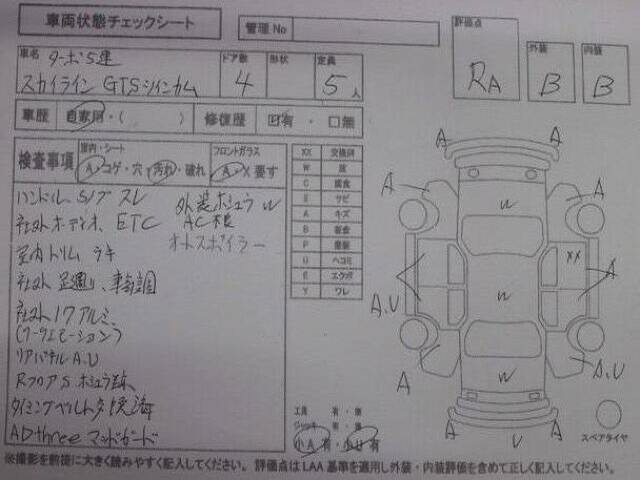 車両状態チェックシート
管理No
評価点 外装 内装
RA B B
車名 ターボ5速 ドア数 形状 定員
スカイライン GTSツインカム 4 5人
車歴 自家用・( ) 修復歴 ☑有・□無
検査事項 室内・シート フロントガラス
A コゲ・穴 汚れ・破れ A・X 要す
ハンドル、S/ブ スレ 外装ボュラW
社外オーディオ、ETC AC
室内トリム ラキ オートスポイラー
社外 足廻り、車高調
社外17アルミ、
(ワークエモーション)
リアパネルA.U
RフロアS
タイミングベルト交換済
ADthree マッドガード
XX 交換済
W 波
C 腐食
S サビ
A キズ
B
P
U ヘコミ
E エクボ
Y ワレ
A A
A A
W
XX
A.U W A
A W A.U
A V A
工具 有・無
ジャッキ 有・無
小A有・小U有
スペアタイヤ
※撮影を前提に大きく読みやすく記入してください。評価点はLAA基準を適用し外装・内装評価を含めて正しく記入してください。